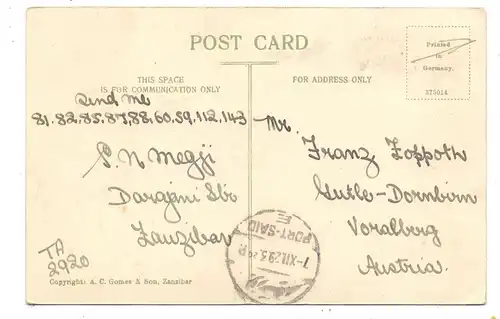 POST CARD
THIS SPACE
IS FOR COMMUNICATION ONLY
FOR ADDRESS ONLY
Printed
in
Germany.
375014
Send me
81.82,85.87,88,60,59,112,143
P. N Megji
Darajani Str
Zanzibar
TA
2920
Mr.
Franz Zoppoth
Gutle-Dornbirn
Voralberg
Austria
PORT-SAID
7-XII.29
Copyright: A. C. Gomes & Son, Zanzibar